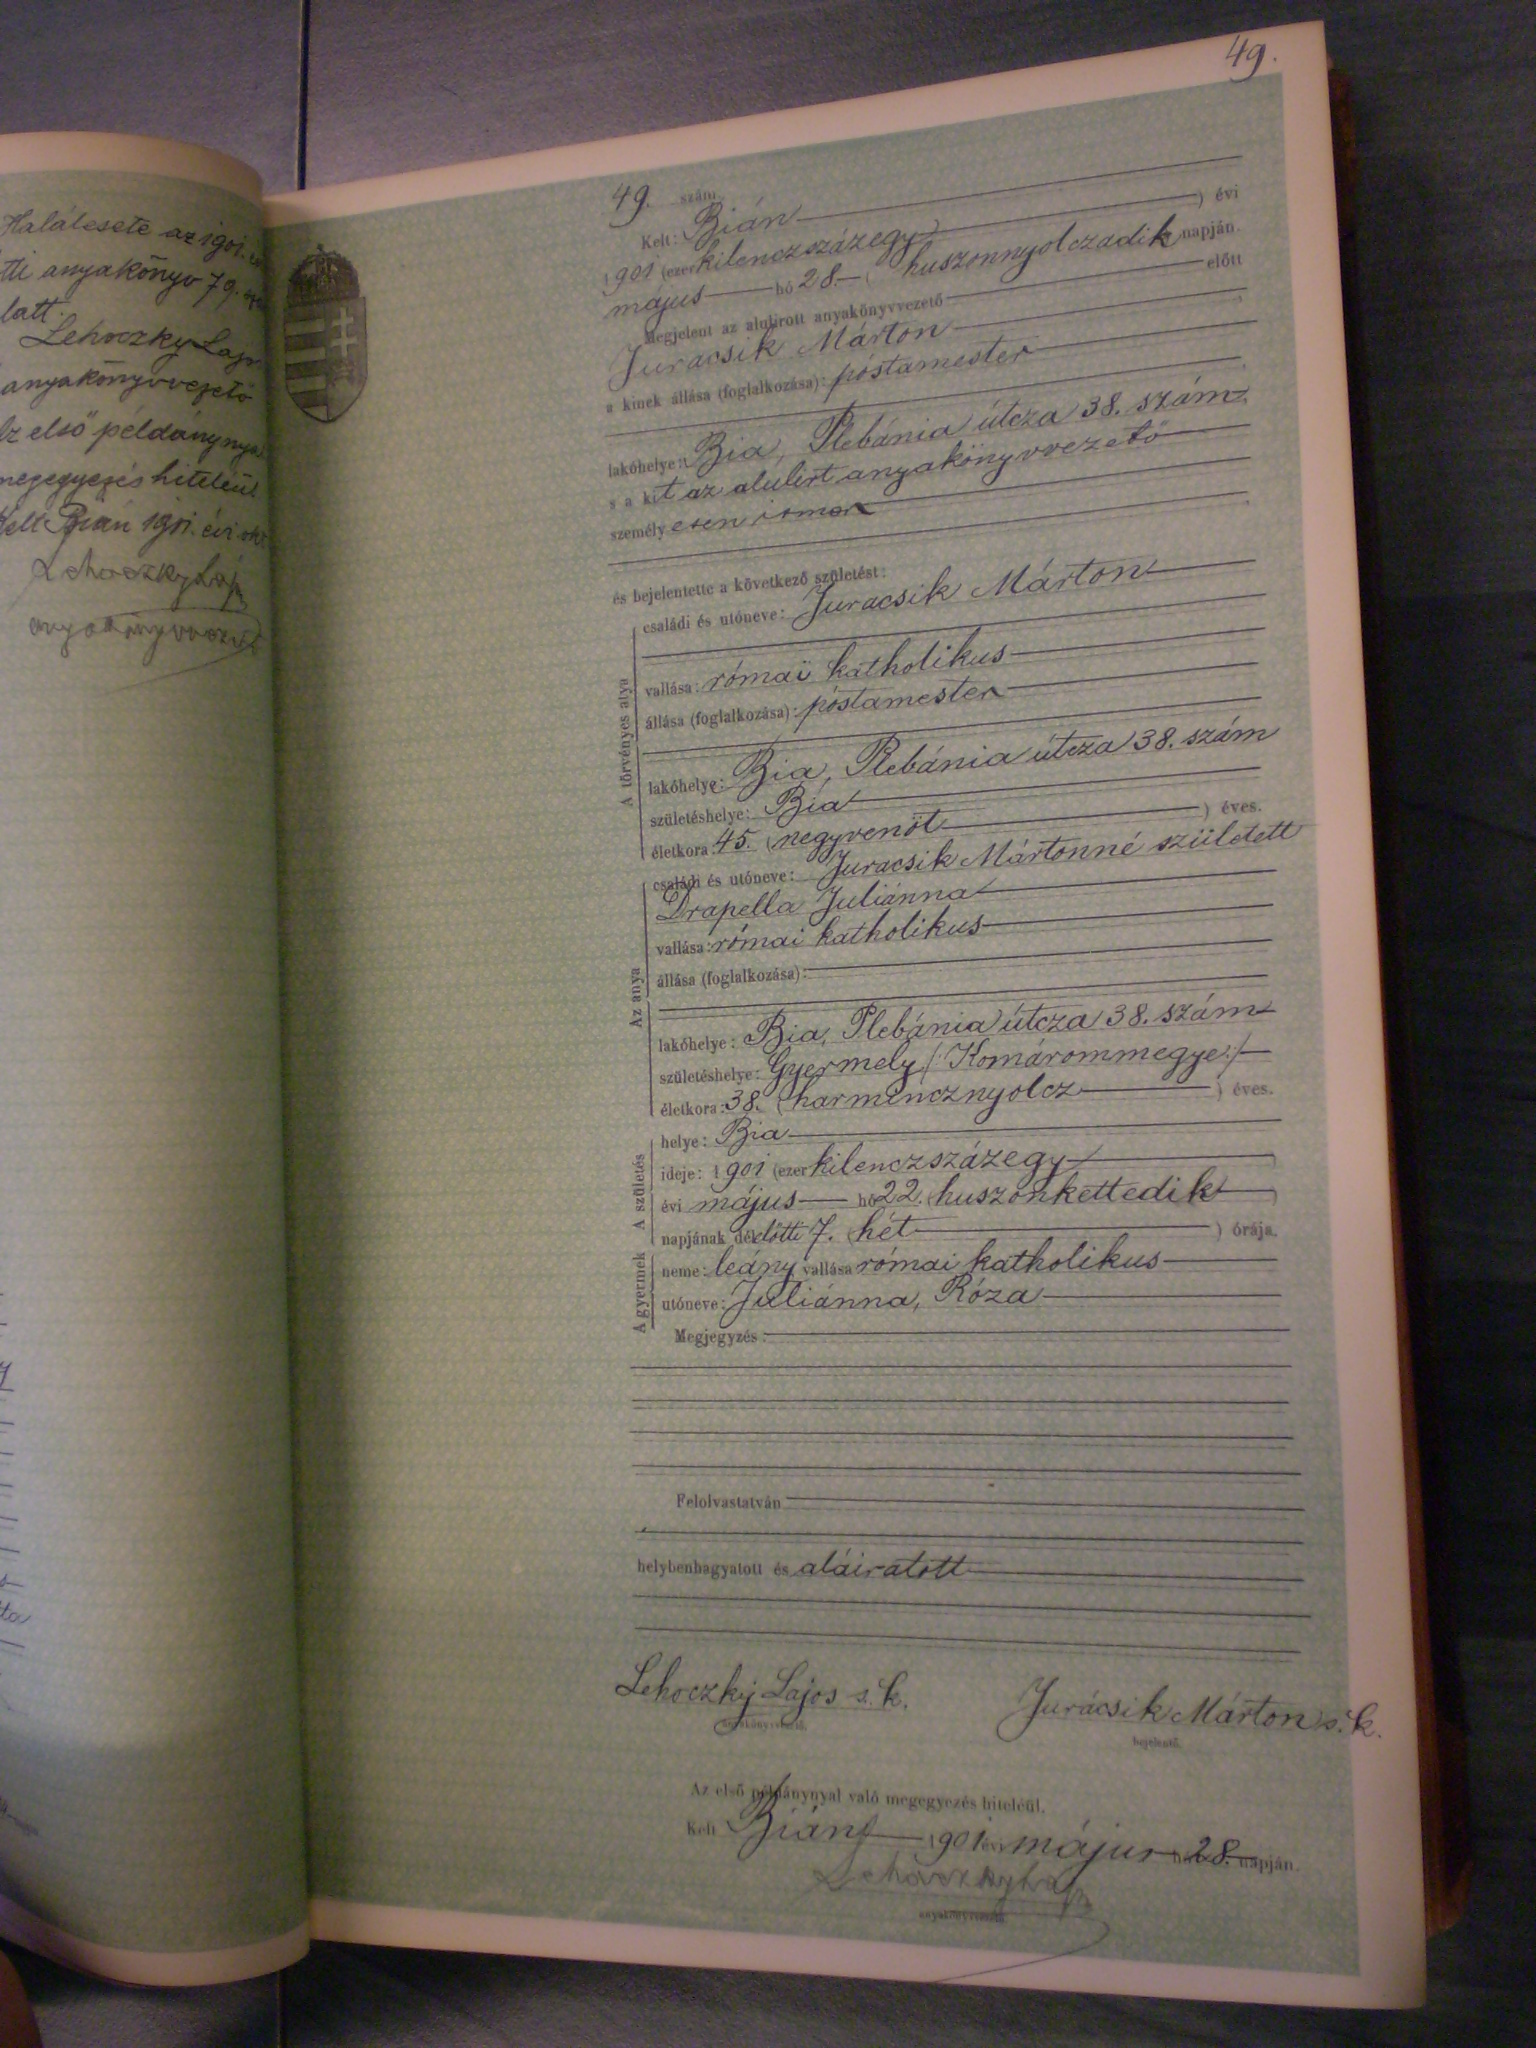 Halálesete az 1901.
tti anyakönyv 79.
latt.
Lehoczky Lajos
anyakönyvvezető
Az első példánynyal
megegyezés hiteléül
Kelt Bián 1901. évi
Lehoczky Lajos
anyakönyvvezető
49.
49. szám.
Kelt: Bián ) évi
1901 (ezer kilenczszázegy
május hó 28. ( huszonnyolczadik napján.
Megjelent az alulirott anyakönyvvezető előtt
Juracsik Márton
a kinek állása (foglalkozása): póstamester
lakóhelye: Bia, Plebánia útcza 38. szám
s a kit az alulírt anyakönyvvezető
személyesen ismer
és bejelentette a következő születést:
A törvényes atya
családi és utóneve: Juracsik Márton
vallása: római katholikus
állása (foglalkozása): póstamester
lakóhelye: Bia, Plebánia útcza 38. szám
születéshelye: Bia
életkora: 45. (negyvenöt ) éves.
Az anya
családi és utóneve: Juracsik Mártonné született
Drapella Juliánna
vallása: római katholikus
állása (foglalkozása):
lakóhelye: Bia, Plebánia útcza 38. szám
születéshelye: Gyermely /: Komárommegye :/
életkora: 38. (harmincznyolcz ) éves.
A születés
helye: Bia
ideje: 1901 (ezer kilenczszázegy )
évi május hó 22. (huszonkettedik )
napjának délelőtti 7. (hét ) órája.
A gyermek
neme: leány vallása római katholikus
utóneve: Juliánna, Róza
Megjegyzés:
Felolvastatván
helybenhagyatott és aláiratott
Lehoczky Lajos s. k. Jurácsik Márton s. k.
anyakönyvvezető. bejelentő.
Az első példánynyal való megegyezés hiteléül.
Kelt Bián 1901 évi május hó 28. napján.
Lehoczky Lajos
anyakönyvvezető